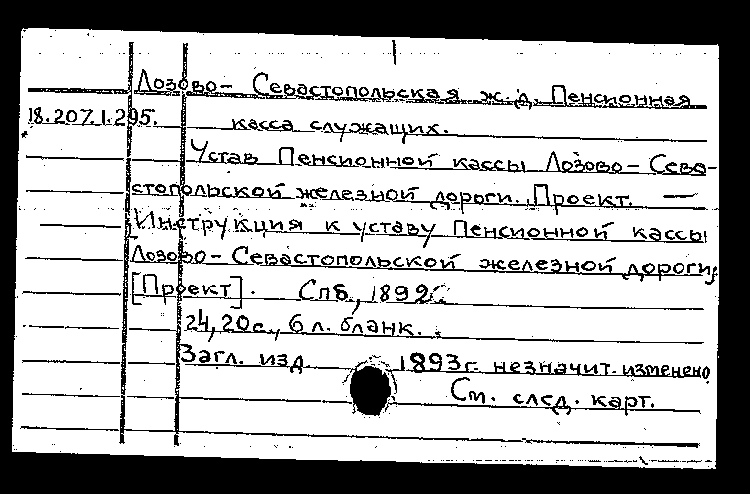 Лозово- Севастопольская ж.д. Пенсионная
18.207.1.295. касса служащих.
Устав Пенсионной кассы Лозово-Сева-
стопольской железной дороги. Проект. —
Инструкция к уставу Пенсионной кассы
Лозово-Севастопольской железной дороги,
[Проект]. Спб., 1892.
24, 20 с., 6 л. бланк.
Загл. изд. 1893г. незначит. изменено
См. след. карт.